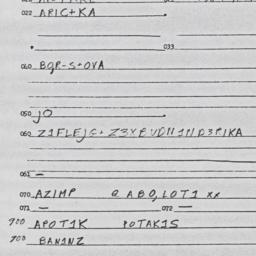 022 APIC+KA
033
040 BQP-S+OVA
050 jO
060 Z1FLEJG+ Z3YEVDN1ND3PIKA
061 –
070 AZIMP @ ABO,LOT1 xx
071 – 072 –
900 APOT1K POTAK1S
900 BAN1NZ